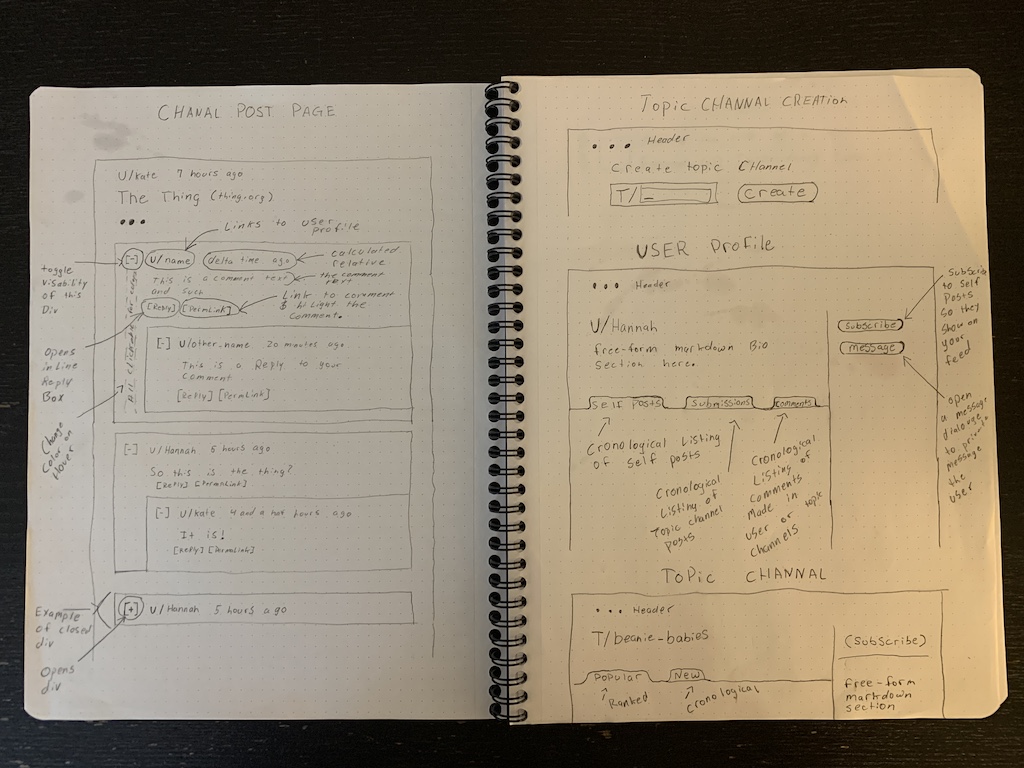 CHANAL POST PAGE
U/kate 7 hours ago
The Thing (thing.org)
•••
Links to user
profile
[-] U/name delta time ago
calculated
relative
toggle
visability
of this
Div
This is a comment text
and such
the comment
text
[Reply] [PermLink]
Link to comment
& hilight the
comment.
Opens
inLine
Reply
Box
[-] U/other_name 20 minutes ago
This is a Reply to your
Comment
[Reply] [PermLink]
Change
color on
hover
[-] U/Hannah 5 hours ago
So this is the thing?
[Reply] [PermLink]
[-] U/kate 4 and a half hours ago
It is!
[Reply] [PermLink]
Example
of closed
div
[+] U/Hannah 5 hours ago
Opens
div
Topic CHANNAL CREATION
••• Header
Create topic CHannel
T/ _ Create
USER Profile
••• Header
U/Hannah
free-form markdown Bio
section here.
Subscribe
message
Subscribe
to Self
Posts
so they
show on
your
feed
open
a message
dialouge
to private
message
the
user
SELF POSTS Submissions comments
Cronological Listing
of self posts
Cronological
Listing of
Topic channel
posts
Cronological
Listing of
comments
made in
user or topic
channels
TOPIC CHANNAL
••• Header
T/beanie-babies
(Subscribe)
Popular New
Ranked
Cronological
free-form
markdown
section